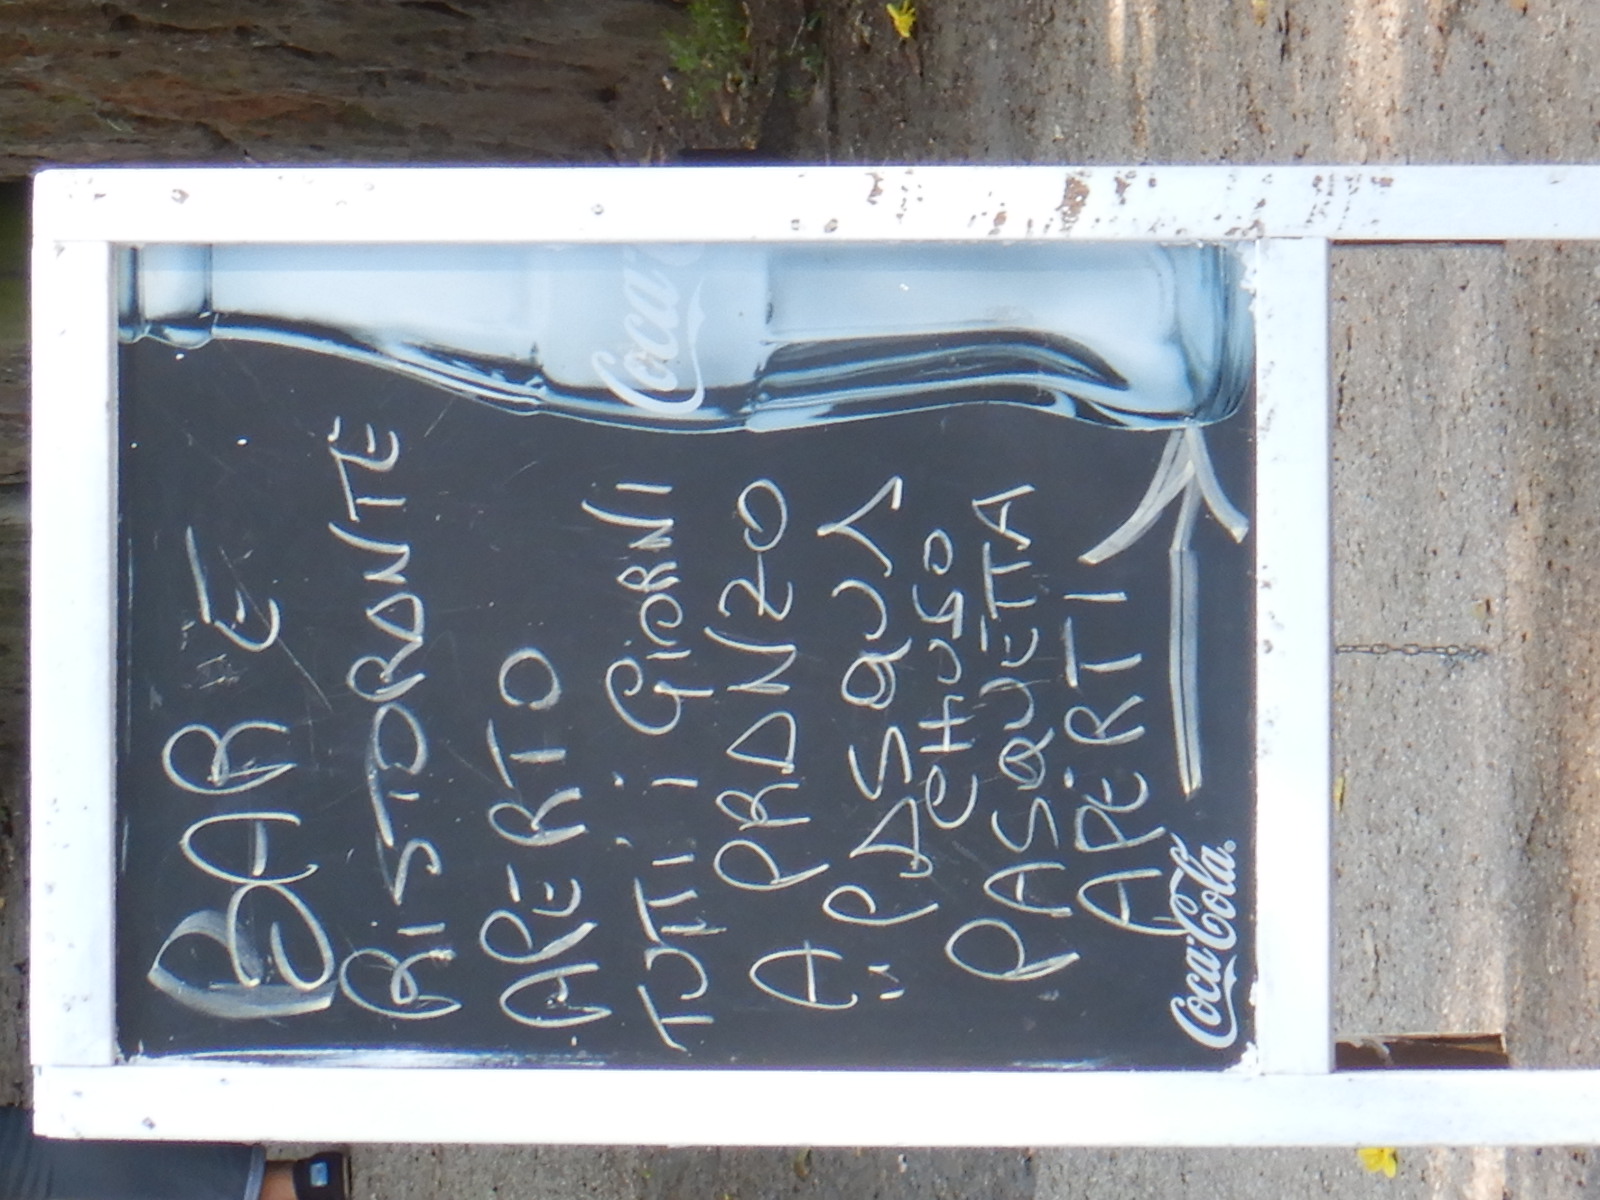 BAR E
RISTORANTE
APERTO
TUTTI i GiORNI
A PRANZO
" PASQUA
CHIUSO
PASQUETTA
APERTI
Coca-Cola
Coca-C